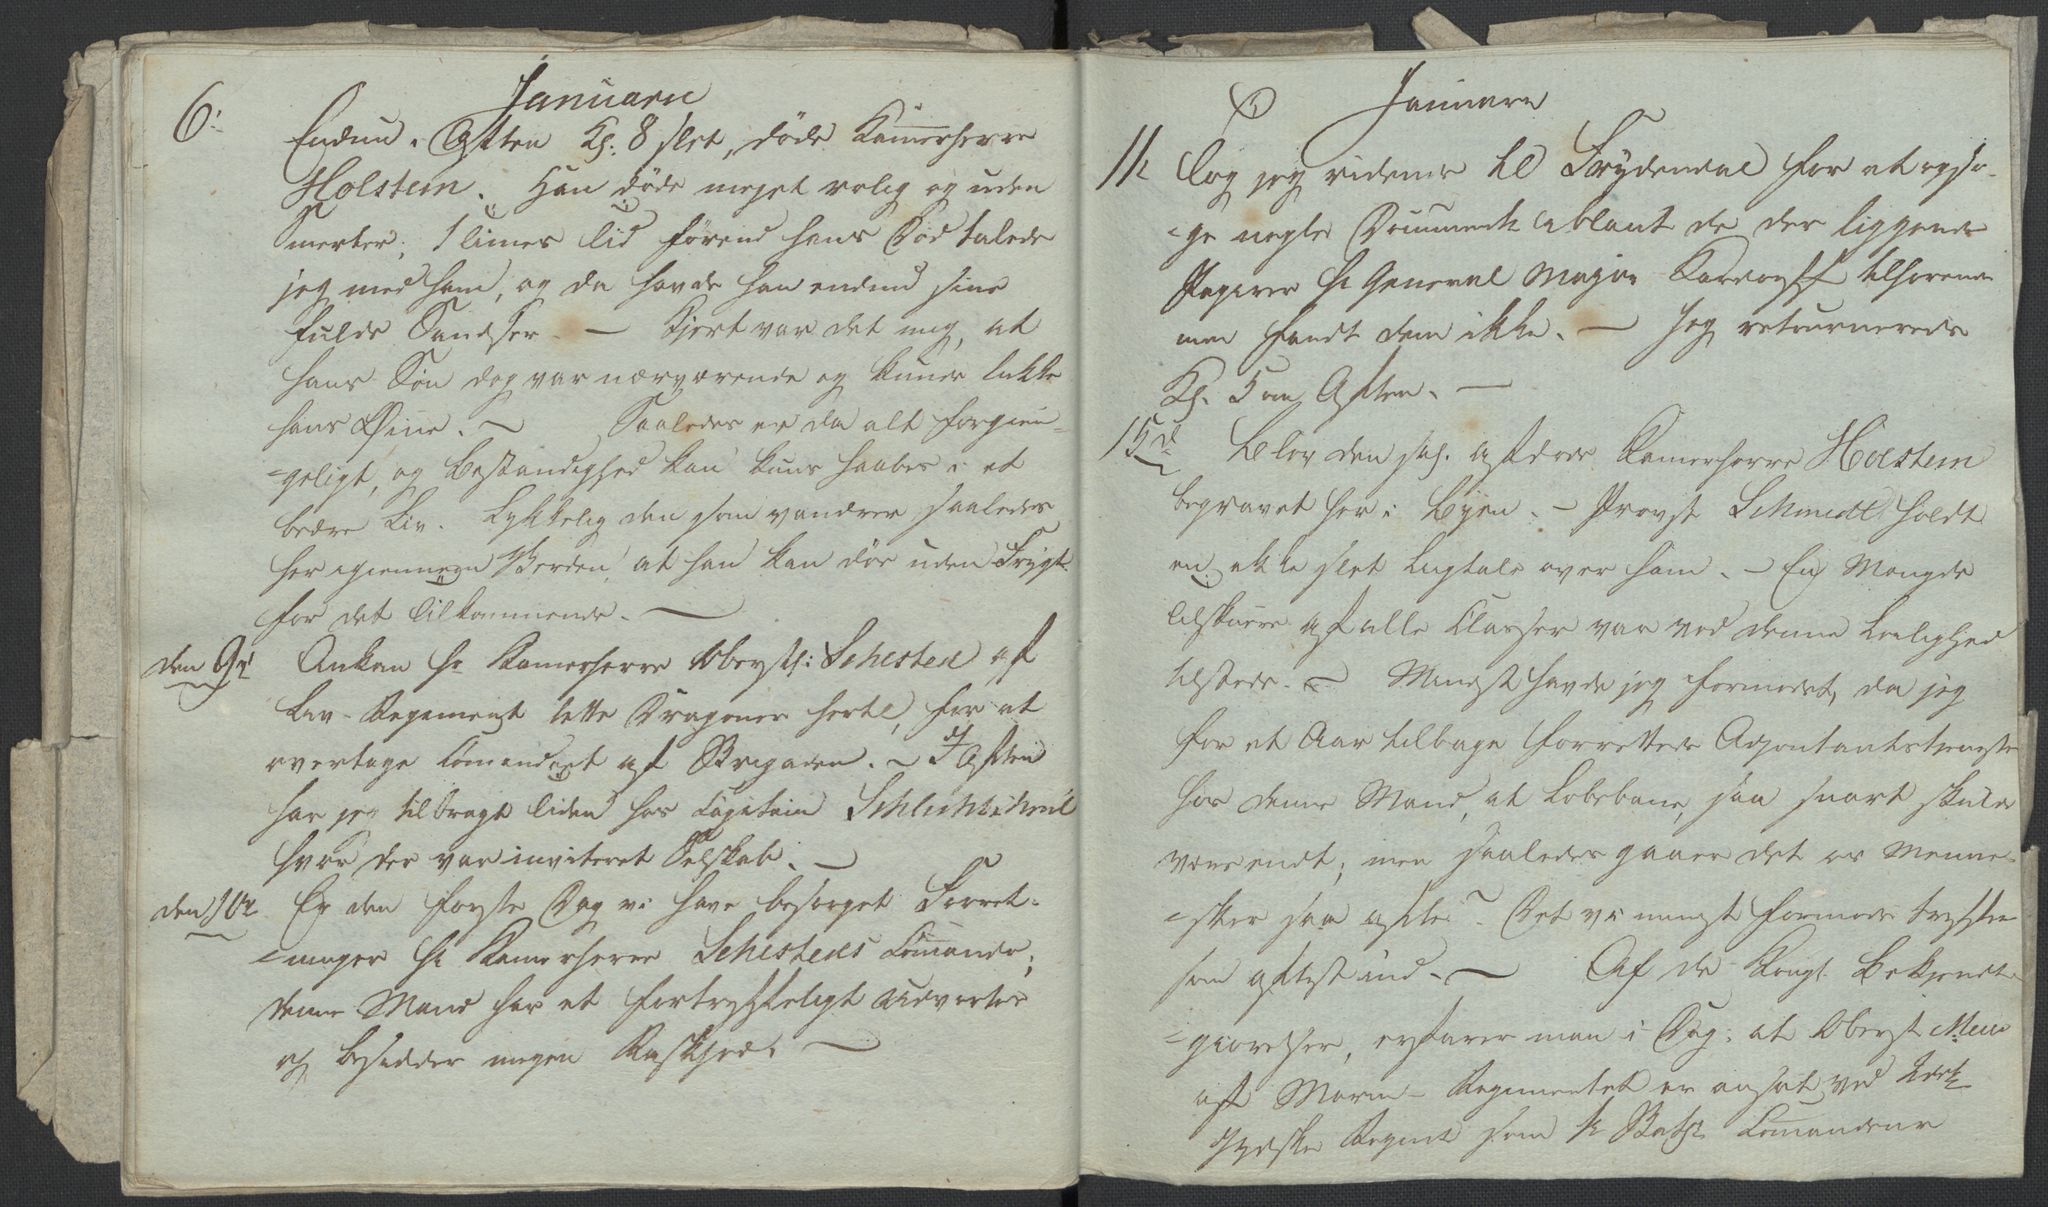 Januari
6: Endnu i Aften Kl: 8 slet, døde Kammerherre
Holstein. Han døde meget rolig og uden
Smerter; 1 Times Tid førend hans Død talede
jeg med ham, og da havde han endnu sine
fulde Sandser. — Kjert var det mig, at
hans Søn dog var nærværende og kunde lukke
hans Øine. — Saaledes er da alt forgien-
=geligt, og Bestandighed kan kuns haabes i et
bedre Liv. Lykkelig den som vandrer saaledes
her igiennem Verden, at han kan døe uden Frygt
for det Tilkommende. —
den 9de Ankom Hr Kammerherre Oberstl: Sehested af
Liv-Regiment lette Dragoner hertil, for at
overtage Comandoet af Brigaden. — I Aften
har jeg tilbragt Tiden hos Capitain
hvor der var inviteret Selskab. —
den 10de Er den første Dag vi have besørget Forret-
=ninger for Kammerherre Sehesteds Comando;
denne Mand har et fortreffeligt Udvortes
og besidder megen Raskhed. —
Januari
11te Tog jeg ridende til Frydendal for at opsø-
=ge nogle Documente iblant de der liggende
Papirer Hr General Major tilhørende
men fandt dem ikke. — Jeg retournerede
Kl. 5 om Aften. —
15d Blev den sal. afdøde Kammerherre Holstein
begravet her i Byen. — Provst Schmidt holdt
en ikke slet Liigtale over ham. — En Mængde
Tilskuere af alle Classer var ved denne Leilighed
tilstede. — Mindst havde jeg formodet, da jeg
for et Aar tilbage forrettede Adjoutantstjeneste
hos denne Mand, at Løbebane, saa snart skulde
være endt; men saaledes gaaer det os Menne-
=sker saa ofte. Det vi mindst formode treffer
som oftest ind. — Af de Kongl. Bekjendt-
=giørelser, erfarer man i Dag: at Oberst
af Marin-Regimentet er ansat ved
Jydske Regimt som Comandeur